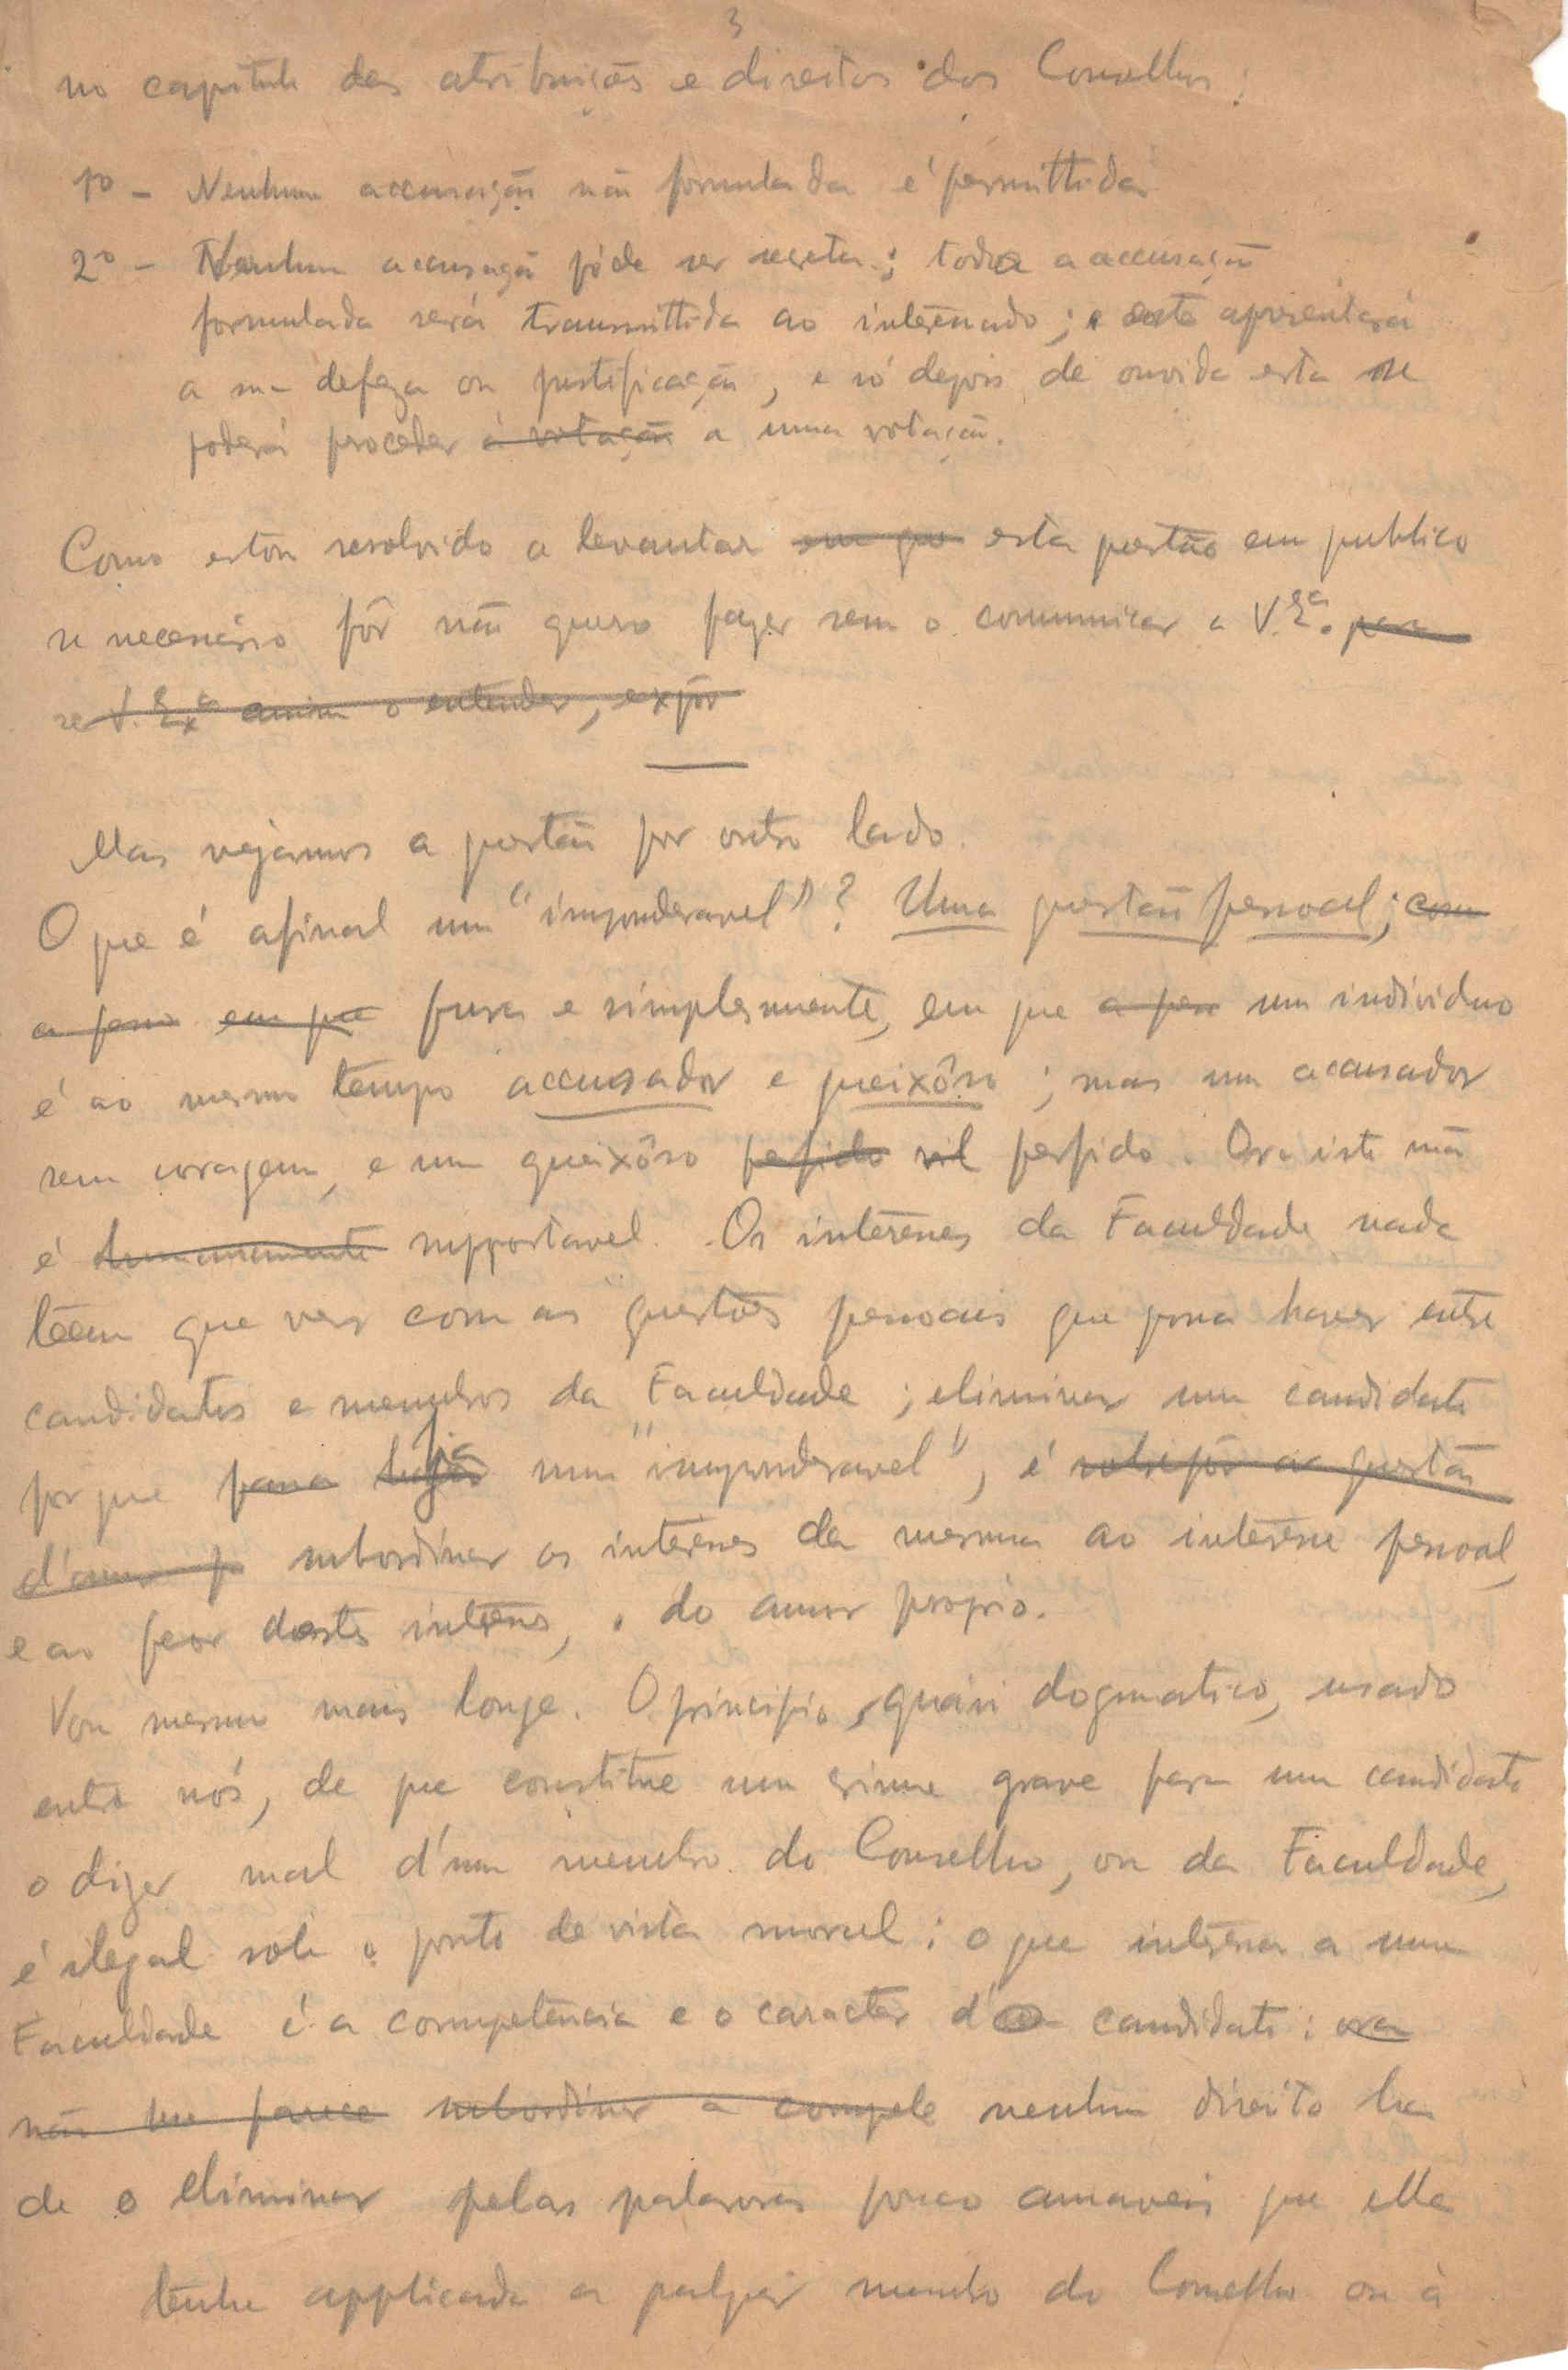 3
no capitulo das atribuições e direitos dos Conselhos:
1º - Nenhuma accusação não formulada é permittida
2º - Nenhuma accusação póde ser secreta; toda a accusação
formulada será transmittida ao interessado; este apresentará
a sua defeza ou justificação, e só depois de ouvida esta se
poderá proceder á votação a uma votação.
Como estou resolvido a levantar em que esta questão em publico
se necessário fôr não quero fazer sem o communicar a V. Eª. para
se V. Exª assim o entender, expôr
Mas vejamos a questão por outro lado.
O que é afinal um "imponderavel"? Uma questão pessoal; com
a pess em que pura e simplesmente, em que a pess um individuo
é ao mesmo tempo accusador e queixôso; mas um accusador
sem coragem, e um queixôso perfido vil perfido. Ora isto não
é humanamente supportavel. Os interêsses da Faculdade nada
têem que ver com as questões pessoais que possa haver entre
candidatos e membros da Faculdade; eliminar um candidato
por que para haja um "imponderavel", é sobrepôr as questão
d'amor p subordinar os interêsses da mesma ao interêsse pessoal,
e ao peor destes interêsses, o do amor proprio.
Vou mesmo mais longe. O principio, quási dogmatico, usado
entre nós, de que constitue um crime grave para um candidato
o dizer mal d'um membro do Conselho, ou da Faculdade,
é ilegal sob o ponto de vista moral; o que interêssa a uma
Faculdade é a competência e o caracter do candidato; ora
não me parece subordinar a compete nenhum direito ha
de o eliminar pelas palavras pouco amaveis que elle
tenha applicado a qualquer membro do Conselho ou á